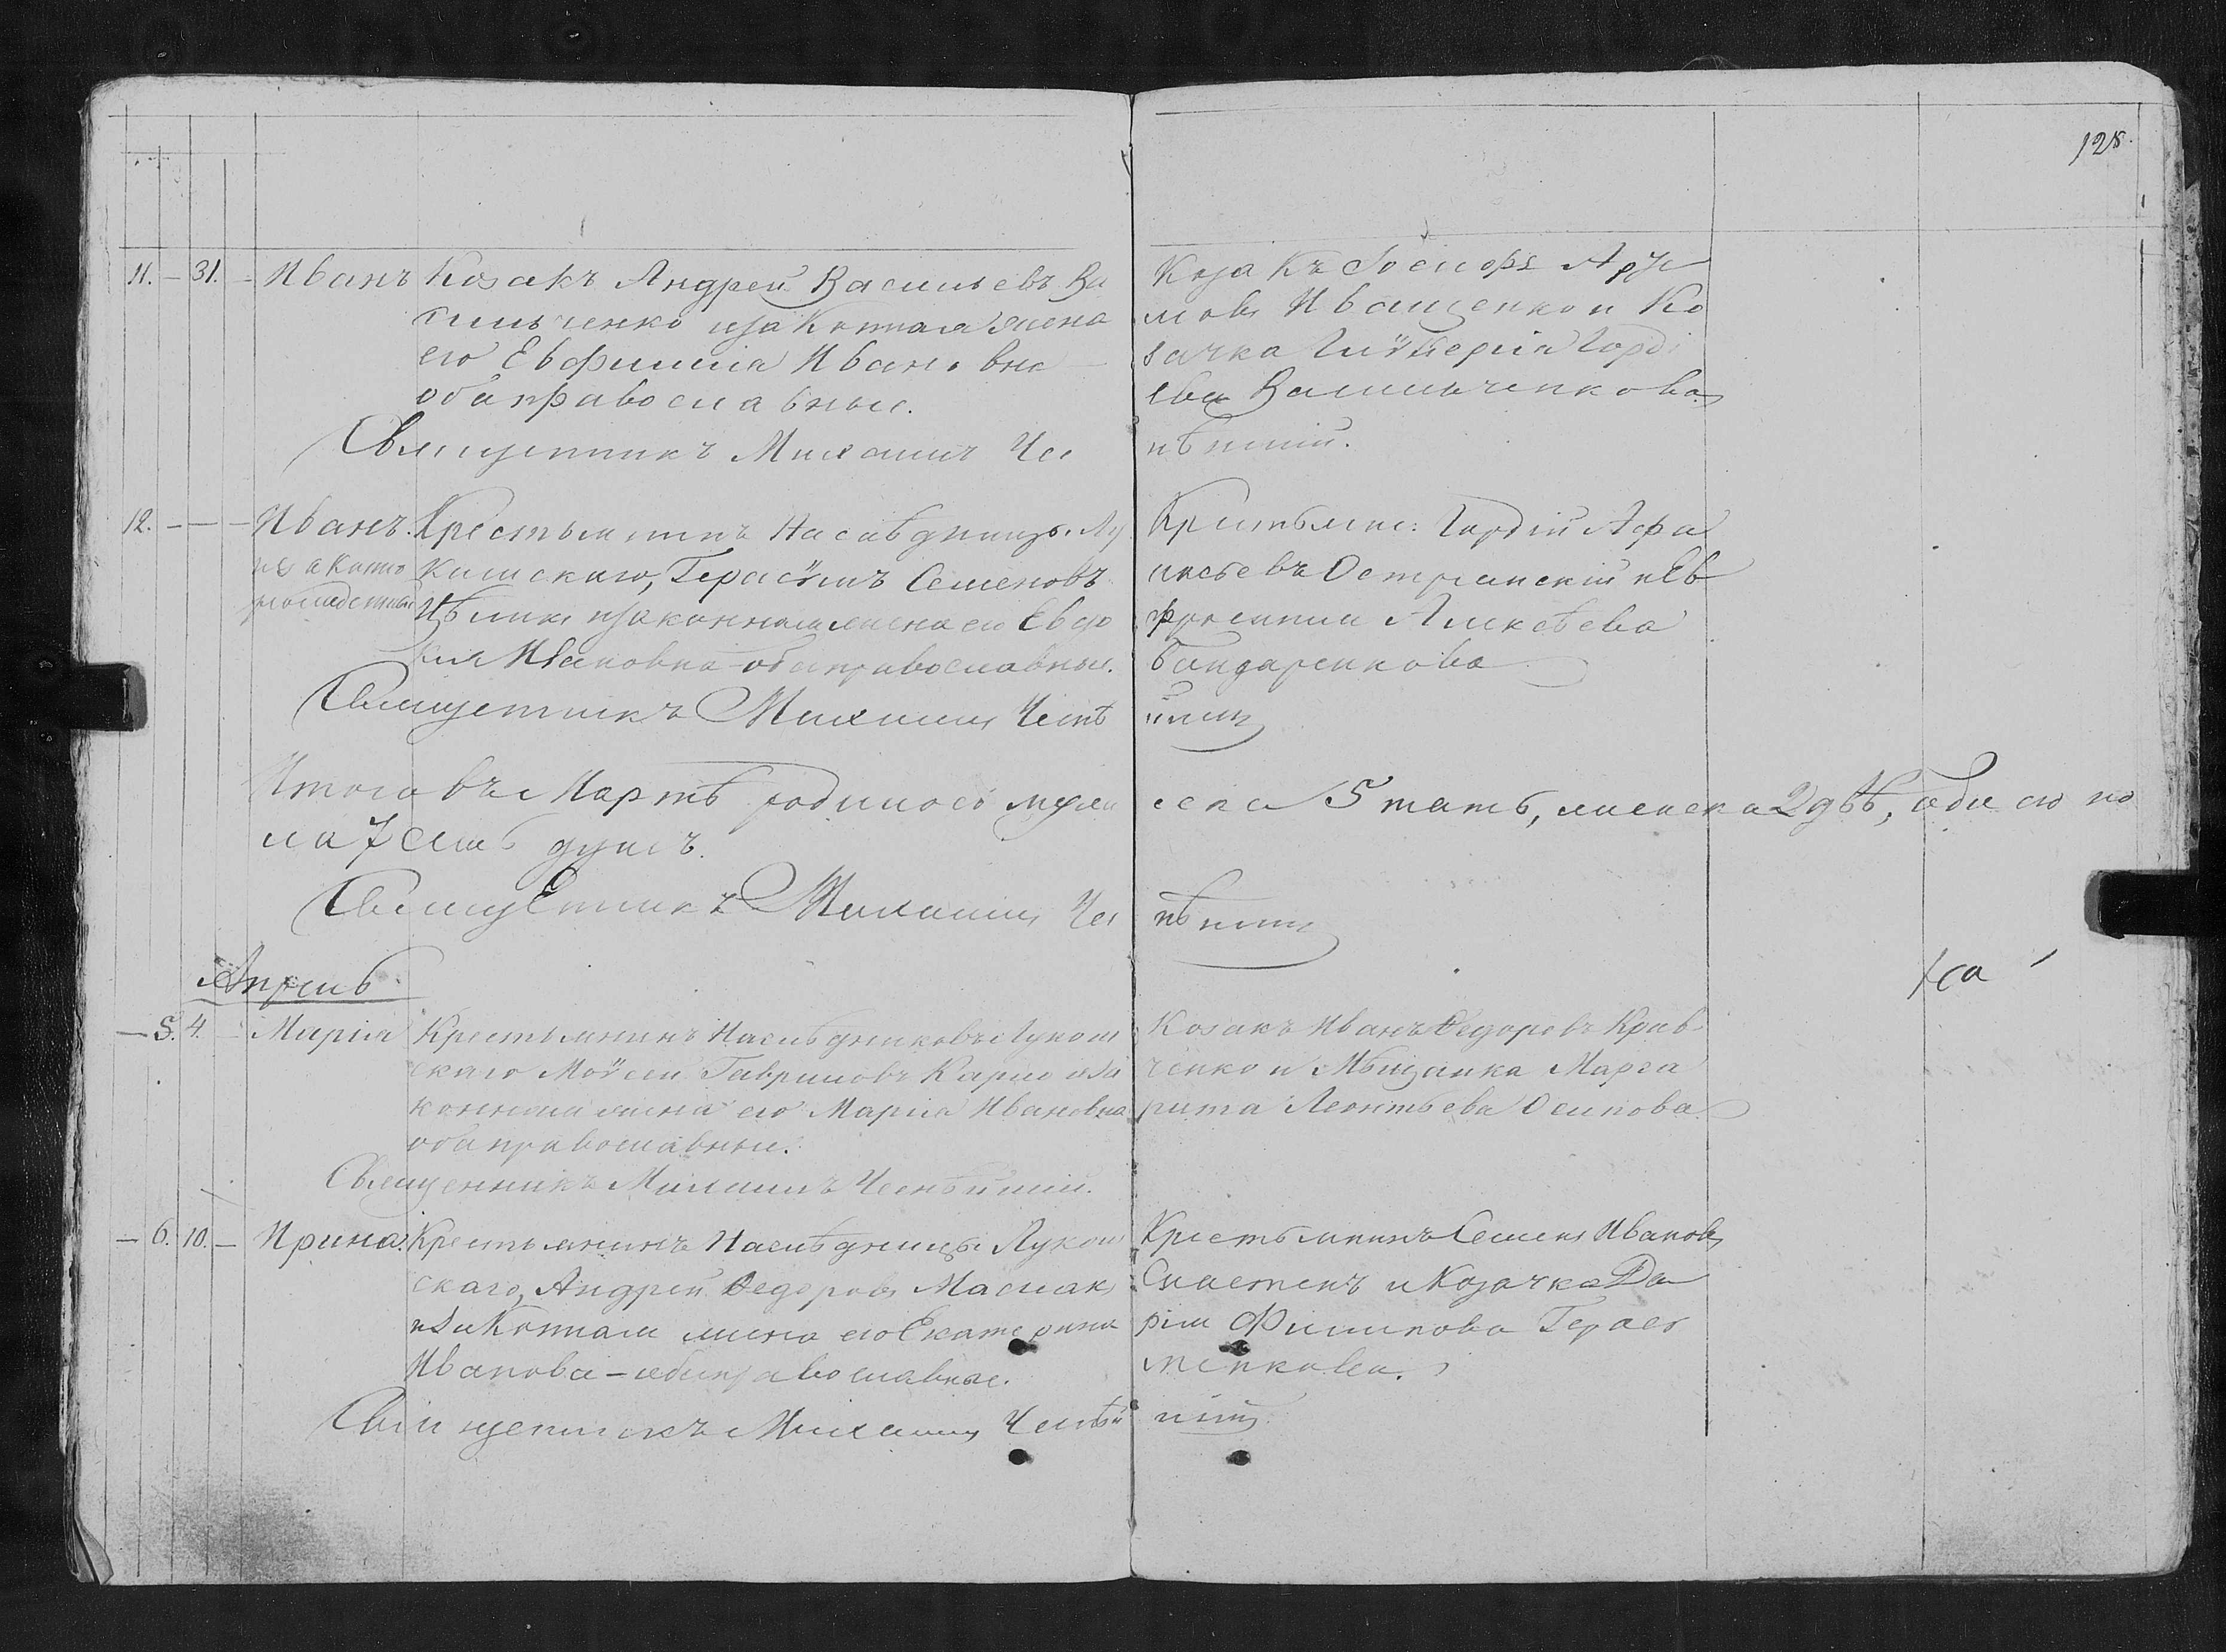 128.
11. - 31. - Иванъ Козакъ Андрей Васильевъ Ва
сильченко изаконная жена
его Евфимия Ивановна
оба православные.
Священникъ Михаилъ Чес
Козакъ Іосифъ
мовъ Иващенко и Ко
зачка Горді
ева Васильченкова
нѣйшій.
12. - - - Иванъ. Крестьянинъ Наслѣдницы Лу
Герасимъ Семеновъ
изаконная жена его Евдо
кия Ивановна оба православные.
Священникъ Михаилъ Чеснѣ
Крестьянин: Гордій Афа
насьевъ Остранскій и Ев
фросиния Алексѣева
Бандаренкова
йшій
Итого въ Мартѣ родилось муже
ска 5 пять, женска 2 двѣ, обоего по
ла 7 семь душъ.
Священникъ Михаилъ Чес
нѣйшій
Апрель
- 5. 4. Марія Крестьянинъ Наслѣдниковъ Луком
скаго Мойсей Гавриловъ иза
конная жена его Марія Ивановна
оба православные.
Священникъ Михаилъ Чеснѣйшій.
Козакъ Иванъ Федоровъ Крав
ченко и Мѣщанка Марга
рита Леонтьева Осипова
- 6. 10. - Ирина. Крестьянинъ Наслѣдницы Луком
скаго, Андрей Федоровъ Маслак
изаконная жена его Екатерина
Иванова - оба православные.
Священникъ Михаилъ Чеснѣй
Крестьянинъ Семенъ Ивановъ
и Козачка Да
рія Филипова Герас
менкова.
шій.